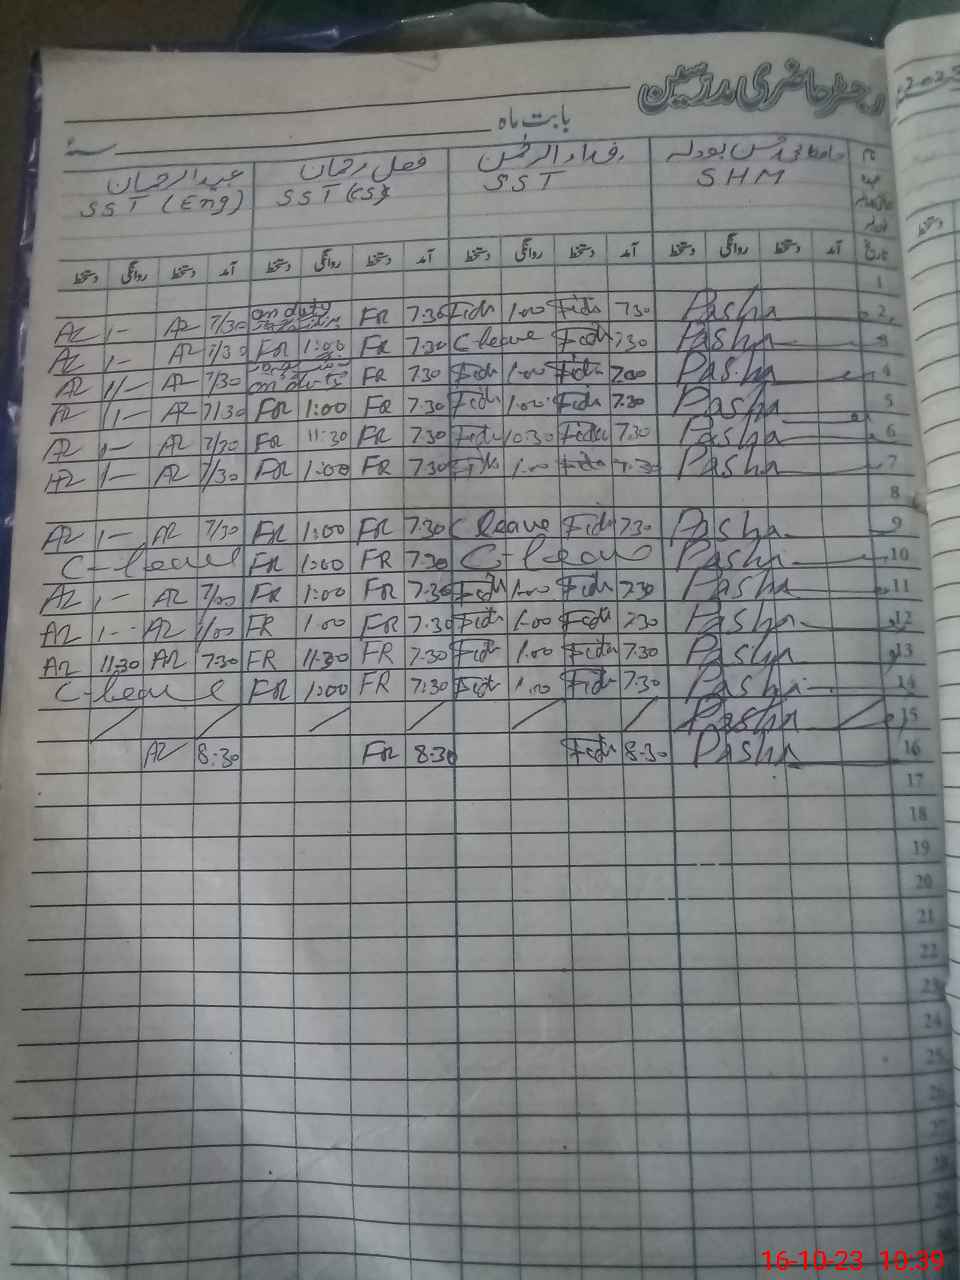 رجسٹر حاضری مدرسین
بابت ماہ
2023
فضل رحمان عبدالرحمان
SHM SST SST (CS) SST (Eng)
تاریخ آمد دستخط روانگی دستخط آمد دستخط روانگی دستخط آمد دستخط روانگی دستخط آمد دستخط روانگی دستخط
1
2 Pasha 7:30 Fida 1:00 Fida 7:30 FR on duty 7/30 AR 1- AR
3 Pasha 7:30 Fida C-leave 7:30 FR 1:00 FR 7/30 AR 1- AR
4 Pasha 7:00 Fida 1:00 Fida 7:30 FR on duty 7/30 AR 1/- AR
5 Pasha 7:30 Fida 1:00 Fida 7:30 FR 1:00 FR 7/30 AR 1- AR
6 Pasha 7:30 Fida 10:30 Fida 7:30 FR 11:30 FR 7/30 AR 1- AR
7 Pasha 7:30 Fida 1:00 Fida 7:30 FR 1:00 FR 7/30 AR 1- AR
8
9 Pasha 7:30 Fida C leave 7:30 FR 1:00 FR 7/30 AR 1- AR
10 Pasha C-leave 7:30 FR 1:00 FR C-leave
11 Pasha 7:30 Fida 1:00 Fida 7:30 FR 1:00 FR 7/00 AR 1- AR
12 Pasha 7:30 Fida 1:00 Fida 7:30 FR 1:00 FR AR 1-- AR
13 Pasha 7:30 Fida 1:00 Fida 7:30 FR 11:30 FR 7:30 AR 11:30 AR
14 Pasha 7:30 Fida 1:00 Fida 7:30 FR 1:00 FR C-leave
15 Pasha
16 Pasha 8:30 Fida 8:30 FR 8:30 AR
17
18
19
20
21
22
23
24
25
26
27
28
16-10-23 10:39